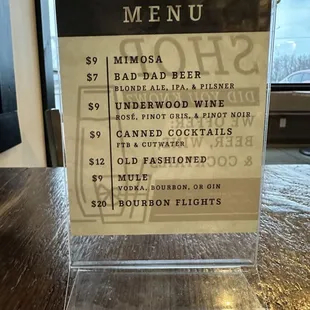 MENU
$9 MIMOSA
$7 BAD DAD BEER
BLONDE ALE, IPA, & PILSNER
$9 UNDERWOOD WINE
ROSÉ, PINOT GRIS, & PINOT NOIR
$9 CANNED COCKTAILS
FTB & CUTWATER
$12 OLD FASHIONED
$9 MULE
VODKA, BOURBON, OR GIN
$20 BOURBON FLIGHTS
SHOP
DID YOU KNOW?
WE OFFER
BEER, WINE,
& COCKTAILS